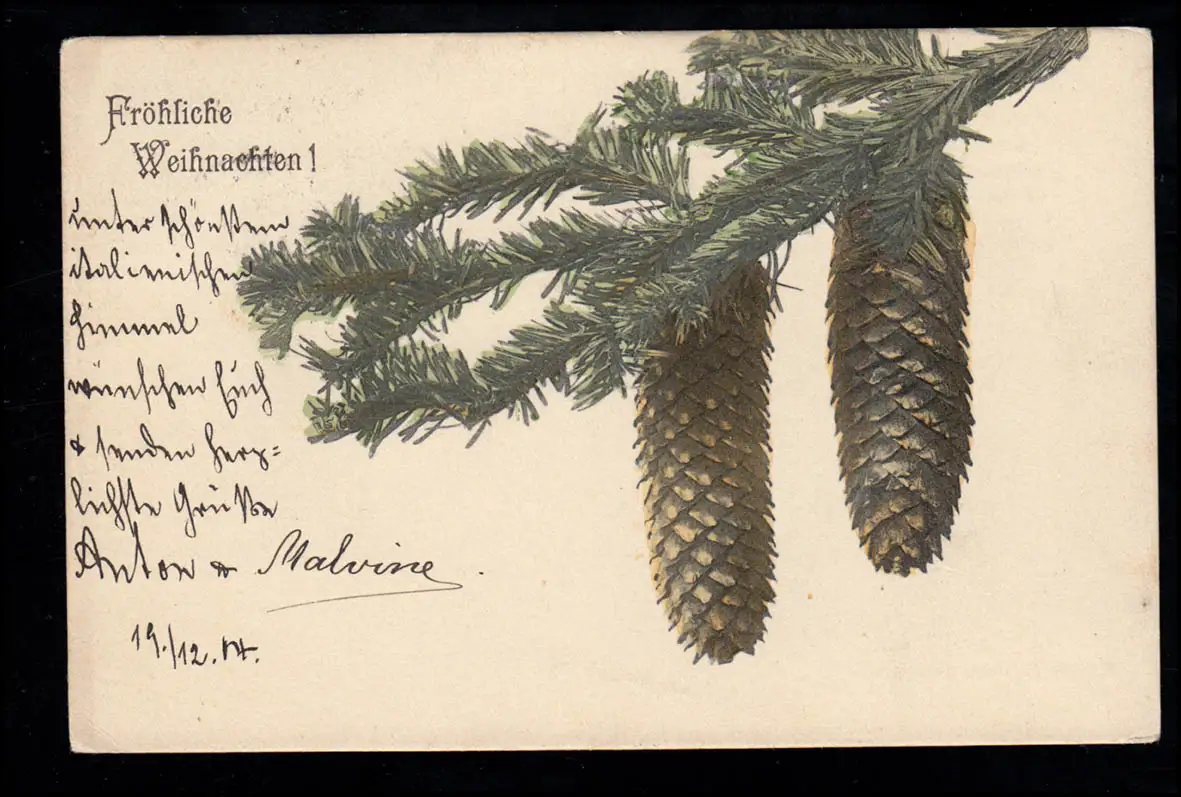 Fröhliche
Weihnachten!
unter schönstem
italienischen
Himmel
wünschen Euch
& senden herz=
lichste Grüße
Anton & Malvine.
19./12.04.